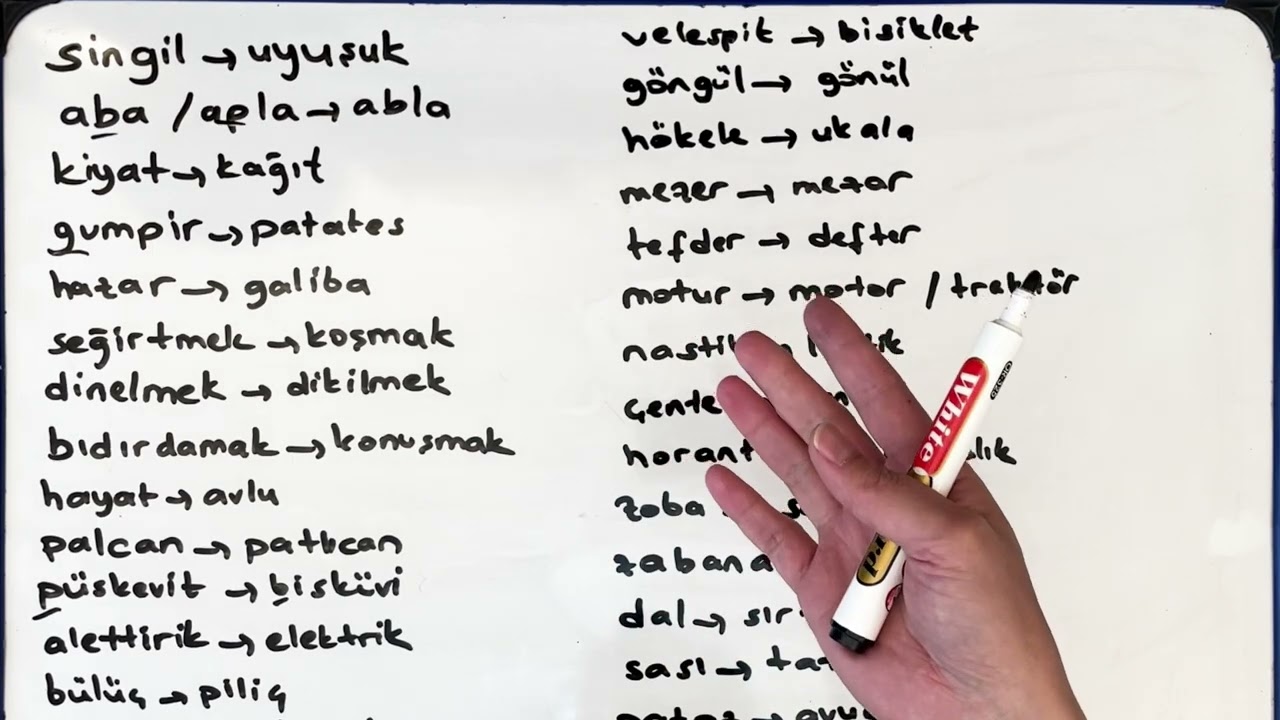 singil → uyuşuk
aba / apla → abla
kiyat → kağıt
gumpir → patates
hazar → galiba
seğirtmek → koşmak
dinelmek → dikilmek
bıdırdamak → konuşmak
hayat → avlu
palcan → patlıcan
püskevit → bisküvi
alettirik → elektrik
bülüç → piliç
velespit → bisiklet
göngül → gönül
hökelek → ukala
mezer → mezar
tefder → defter
motur → motor / traktör
nasti
çente
horant
zoba
zabana
dal → sır
sası → ta
White